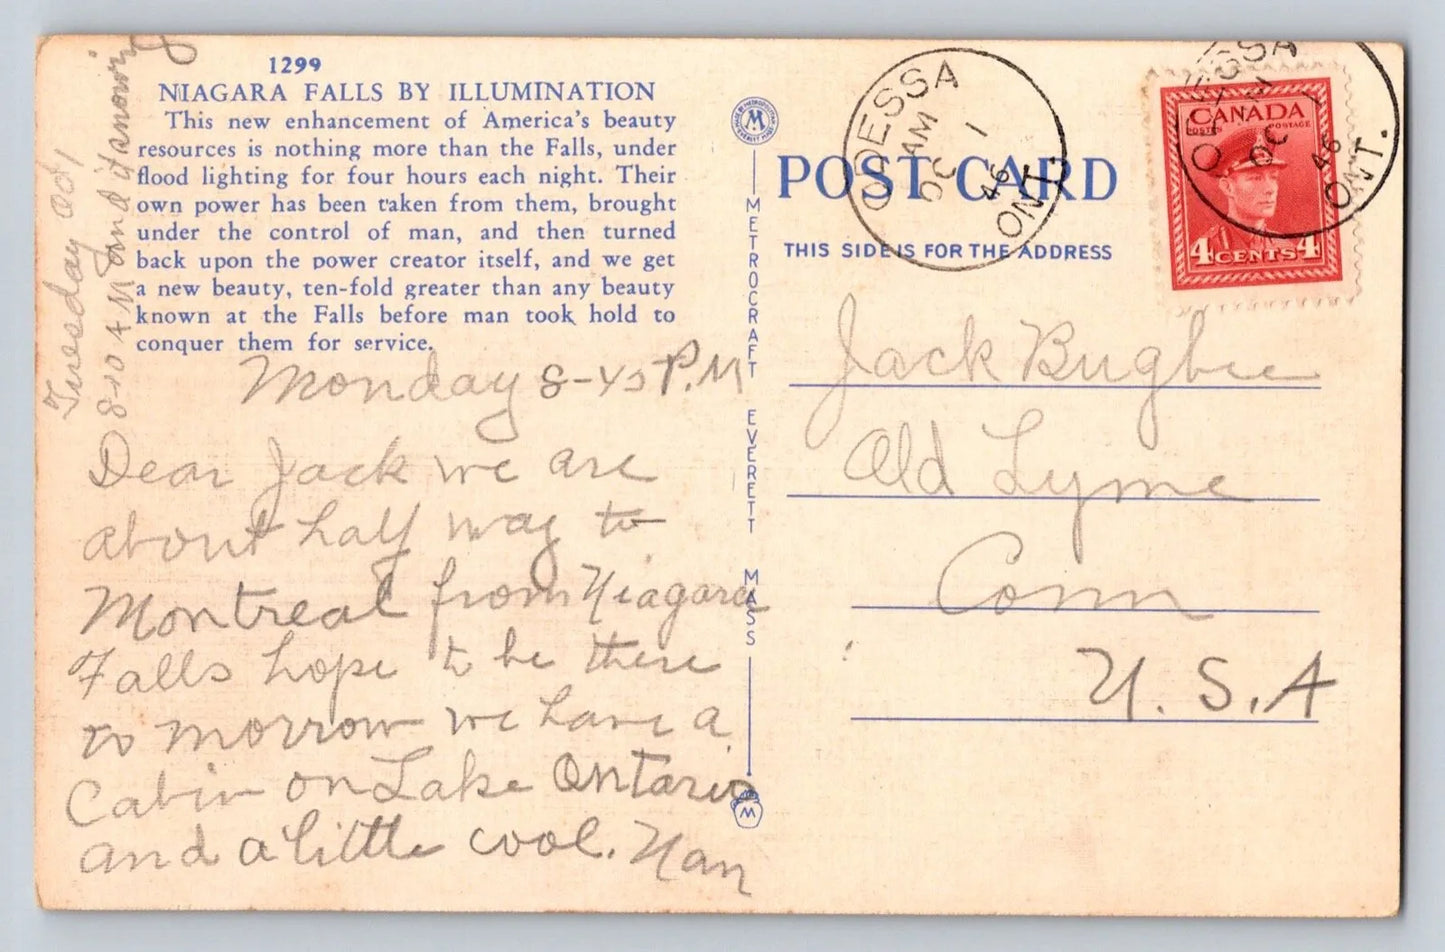 1299
NIAGARA FALLS BY ILLUMINATION
This new enhancement of America's beauty
resources is nothing more than the Falls, under
flood lighting for four hours each night. Their
own power has been taken from them, brought
under the control of man, and then turned
back upon the power creator itself, and we get
a new beauty, ten-fold greater than any beauty
known at the Falls before man took hold to
conquer them for service.
Tuesday Oct, 1
8-10 AM and
Monday 8-45 P.M
Dear Jack we are
about half way to
Montreal from Niagara
Falls hope to be there
to morrow we have a
Cabin on Lake Ontario
and a little cool. Nan
METROCRAFT EVERETT MASS
MADE BY METROPOLITAN
M
EVERETT MASS
M
POST CARD
THIS SIDE IS FOR THE ADDRESS
ODESSA
AM
OC 1
46
ONT.
CANADA
POSTES POSTAGE
4 CENTS 4
ODESSA
AM
OC 1
46
ONT.
Jack Bugbee
Old Lyme
Conn
U.S.A